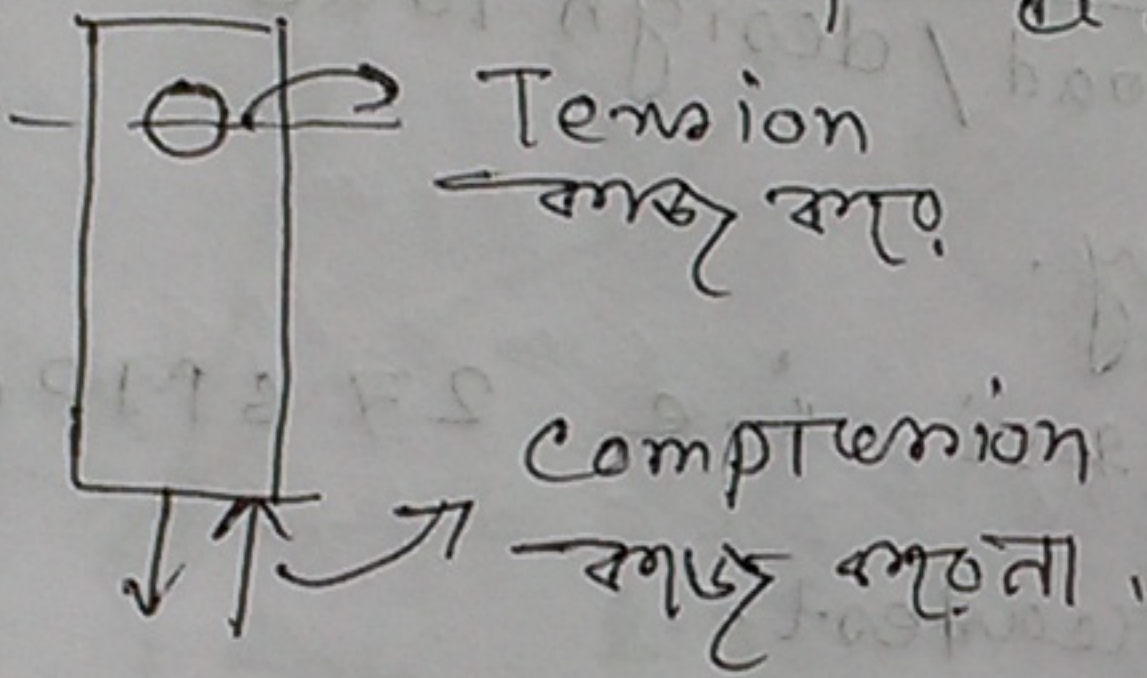 Tension
কাজ করে
Compression
কাজ করে না.